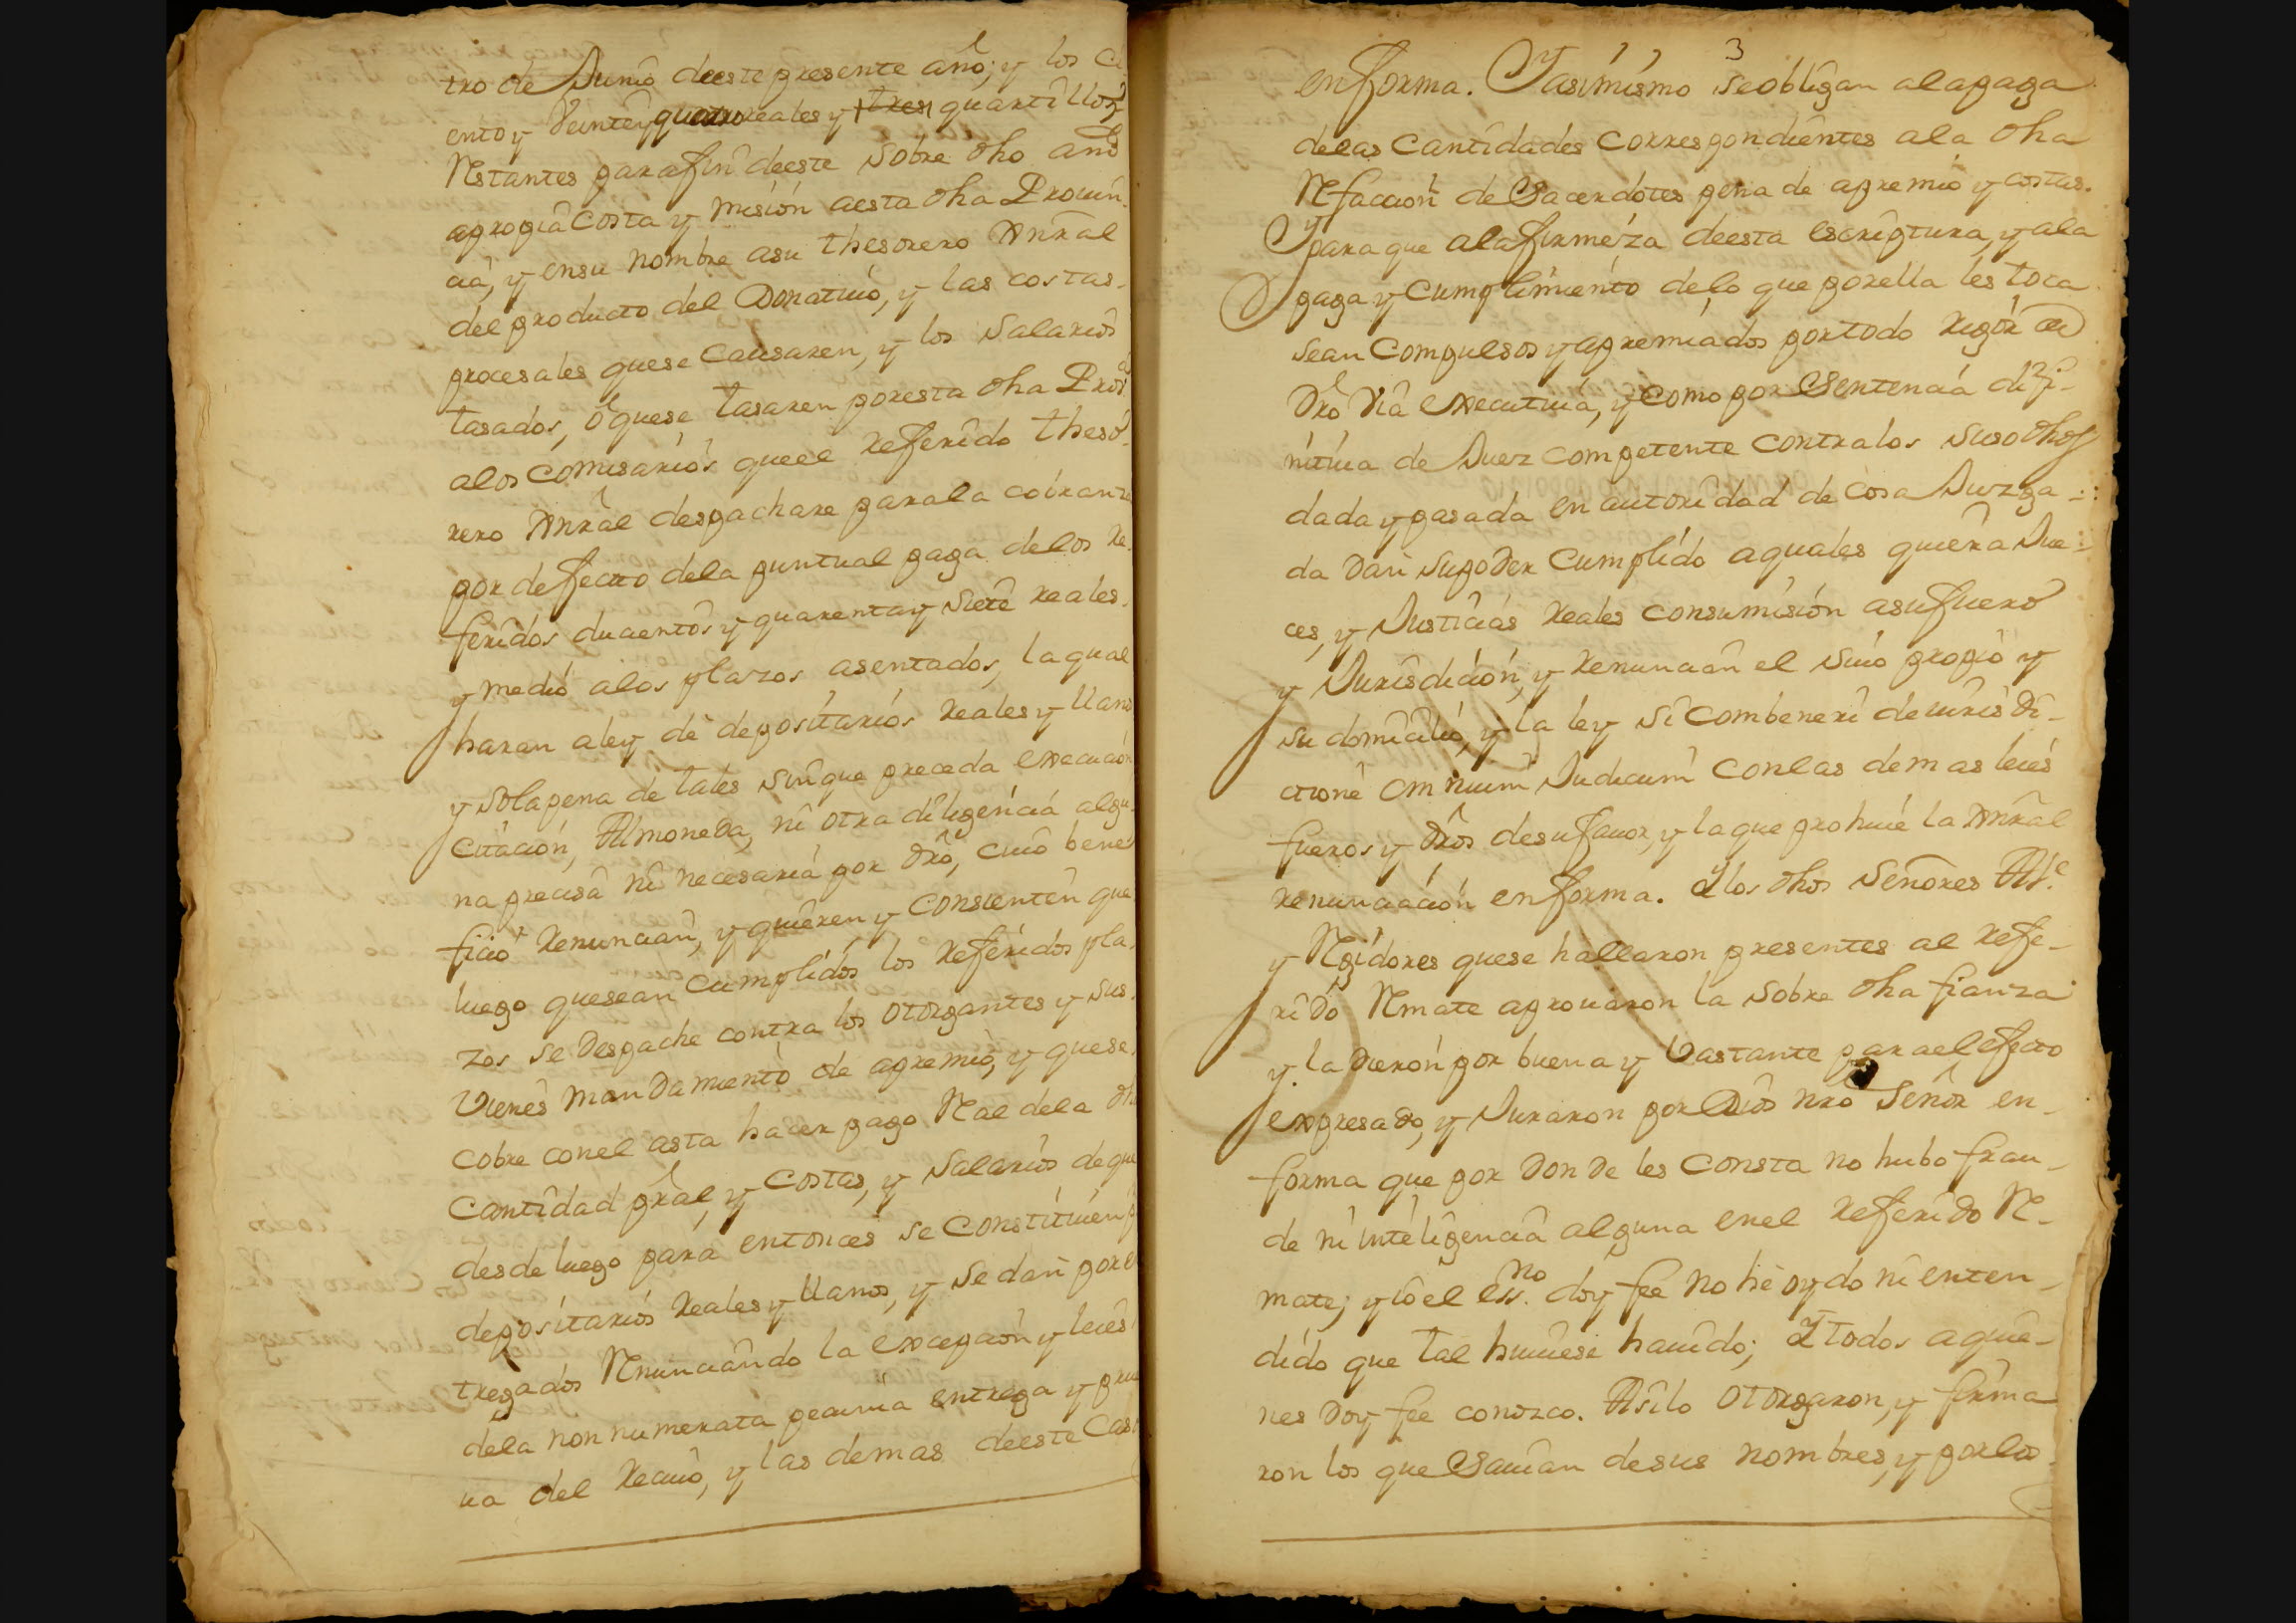 tro de Junio deeste presente año; y los Ci
ento y Veinte y quatro reales y tres quartillos
Restantes para fin deeste sobre dho año
apropia Costa y mision aesta dha Provin-
cia, y ensu nombre asu thesorero Gnrãl
del producto del Donativo, y las costas
procesales quese Causaren, y los Salarios
tasados, o quese tasaren poresta dha Prov.ª
alos Comisarios queel referido theso-
rero Gnrãl despachare parala cobranza
por defecto dela puntual paga delos re-
feridos ducientos y quarenta y siete reales
y medio alos plazos asentados, la qual
haran aley de depositarios reales y llanos
y sola pena de tales sinque preceda execucion
Citacion, Almoneda, ni otra diligencia algu-
na precisa ni necesaria por dro, cuio bene
ficio renuncian, y quieren y consienten que
luego quesean Cumplidos los referidos pla-
zos se despache contra los otorgantes y sus
Vienes mandamiento de apremio, y quese
cobre conel asta hacer pago Real dela dha
Cantidad prãl, y Costas, y Salarios de que
desde luego para entonces se Constituien
depositarios reales y llanos, y se dan por en
tregados Renunciando la excepcion y leies
dela non numerata pecunia entrega y prue
va del recivo, y las demas deeste Caso
3
enforma. Y asimismo se obligan alapaga
delas Cantidades Correspondientes ala dha
Refaccion de Sacerdotes pena de apremio y costas.
Y para que alafirmeza deesta escriptura, y ala
paga y Cumplimiento delo que porella les toca
sean Compulsos y apremiados portodo rigor de
dro Via executiva, y Como por Sentencia difi-
nitiva de Juez competente contralos susodhos
dada y pasada en autoridad de Cosa Juzga-
da dan supoder Cumplido aquales quiera Jue-
ces, y Justicias reales consumision asufuero
y Jurisdicion, y renuncian el suio propio y
su domicilio, y la ley si Combenerit de iurisdi-
ctione omnium Judicum Conlas demas leies
fueros y dros desufavor, y laque prohive la Gnrãl
renunciacion enforma. Y los dhos Señores Alc.
y Regidores quese hallaron presentes al refe-
rido Remate aprovaron la sobre dha fianza
y la dieron por buena y Vastante para el efecto
expresado, y Juraron por Dios nrõ Señor en
forma que por donde les Consta no hubo frau-
de ni inteligencia alguna enel referido Re-
mate; y io el ess.no doy fee no he oydo ni enten-
dido que tal huviese havido; Y todos aquie-
nes doy fee conozco. Asilo otorgaron, y firma
ron los que Savian desus nombres, y porlos